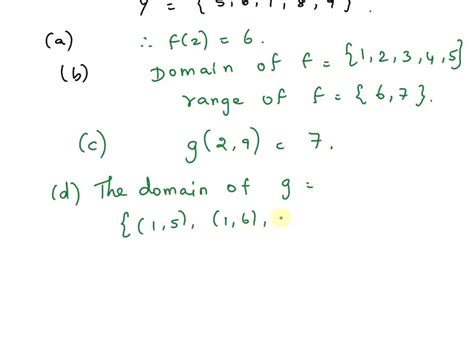 Y = { 5, 6, 7, 8, 9 }.
(a) ∴ f(2) = 6.
(b) Domain of f = {1, 2, 3, 4, 5}
range of f = { 6, 7 }.
(c) g(2, 9) = 7.
(d) The domain of g =
{(1,5), (1,6),